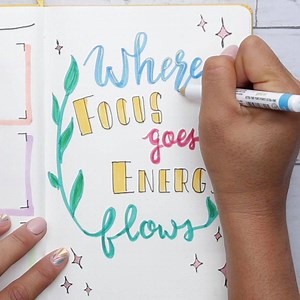 Where
FOCUS
goes
ENERGY
flows